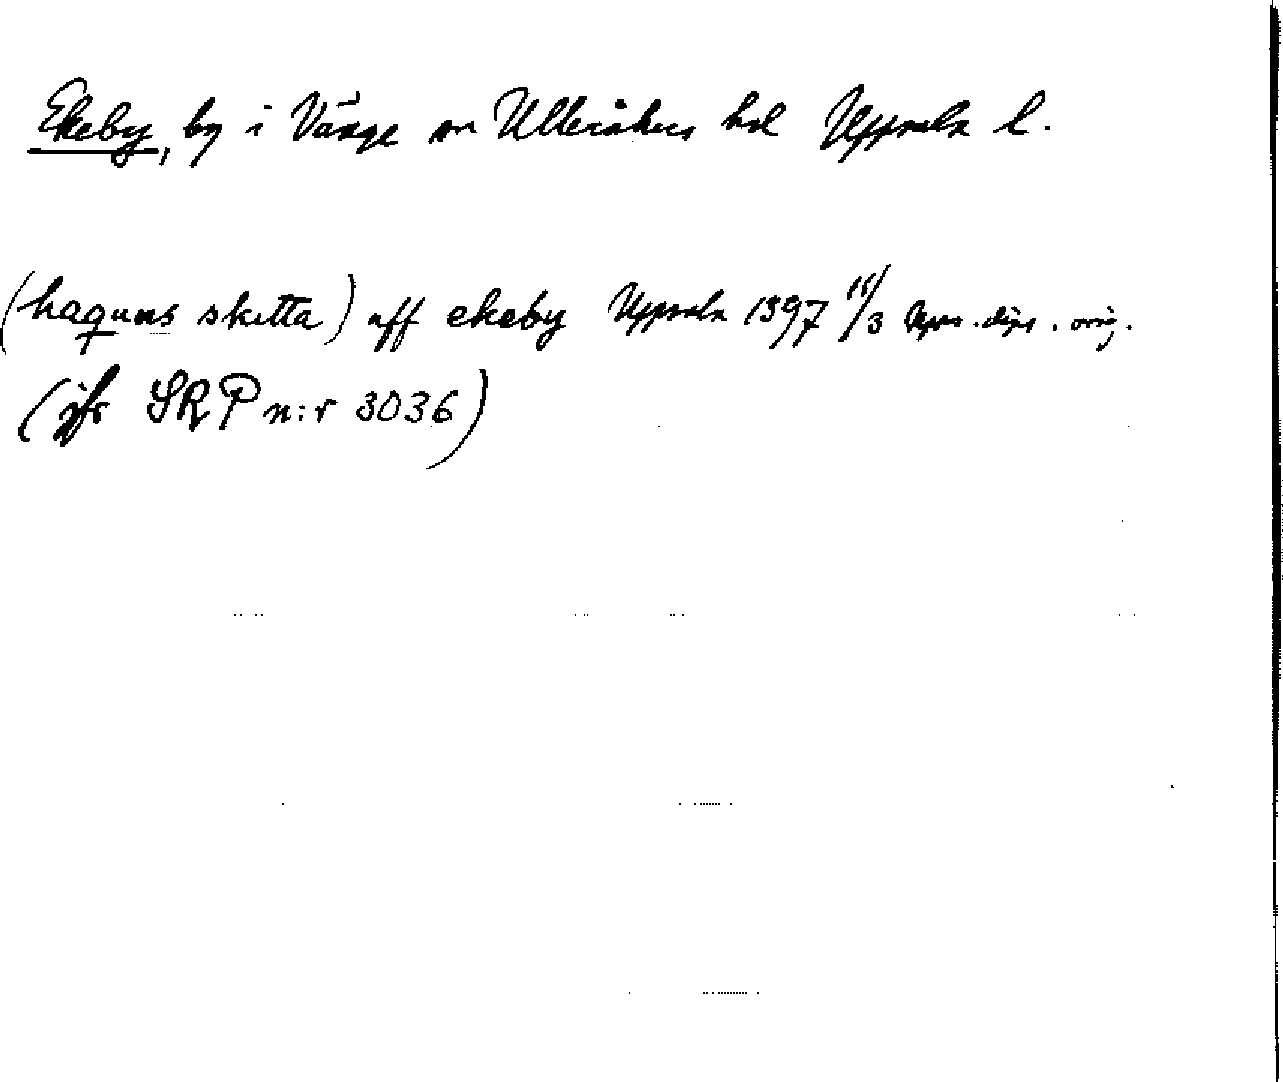 Ekeby, by i Vänge sn Ulleråkers hd Uppsala l.
(haquns skitta) aff ekeby Uppsala 1397 11/3 dipl. orig.
(jfr SRP n:r 3036)